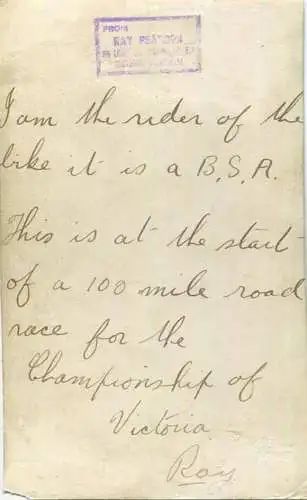 FROM
RAY
I am the rider of the
bike it is a B.S.A.
This is at the start
of a 100 mile road
race for the
Championship of
Victoria
Ray